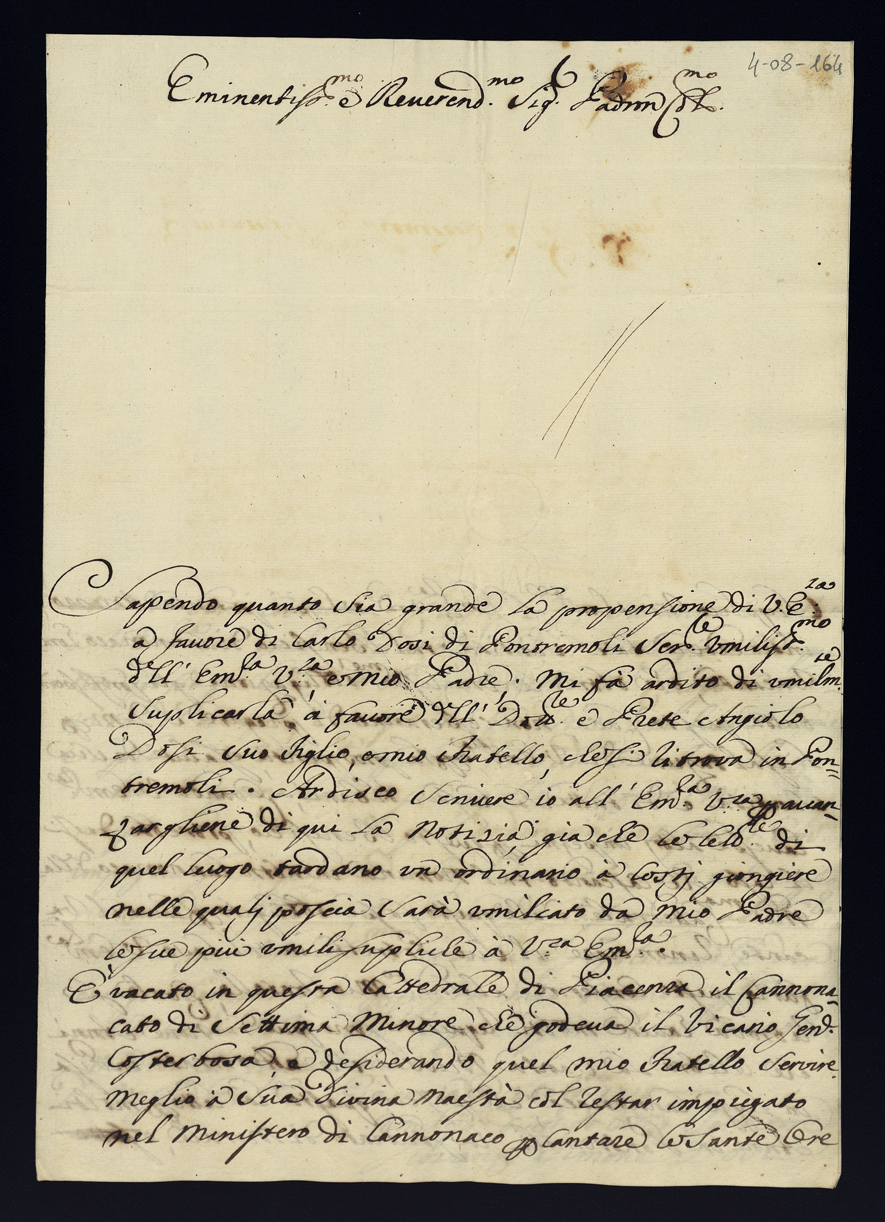 4-08-164
Eminentiss.mo e Reuerend.mo Sig.r Padron Col.mo
Sapendo quanto sia grande la propensione di V. E.za
a fauore di Carlo Dosi di Pontremoli Ser.le vmiliss.mo
dell' Em.za V.ra e mio Padre. Mi fà ardito di vmilm.te
suplicarla à fauore dell' Dott.le e Prete Angiolo
Dosi suo figlio, e mio fratello, che si ritroua in Pon=
tremoli. Ardisco scriuere io all' Em.za V.ra p auan=
zargliene di qui la notizia, gia che le di
quel luogo tardano vn ordinario à costj giongiere
nelle qualj poscia sarà vmiliato da mio Padre
le sue più vmili supliche à V.ra Em.za.
E' vacato in questa Cattedrale di Piacenza il Cannona=
cato di Settima Minore che godeua il Vicario Gen.le
Costerbosa, e desiderando quel mio fratello seruire
meglio à Sua Diuina Maestà col restar impiegato
nel Ministero di Cannonaco p cantare le sante Ore